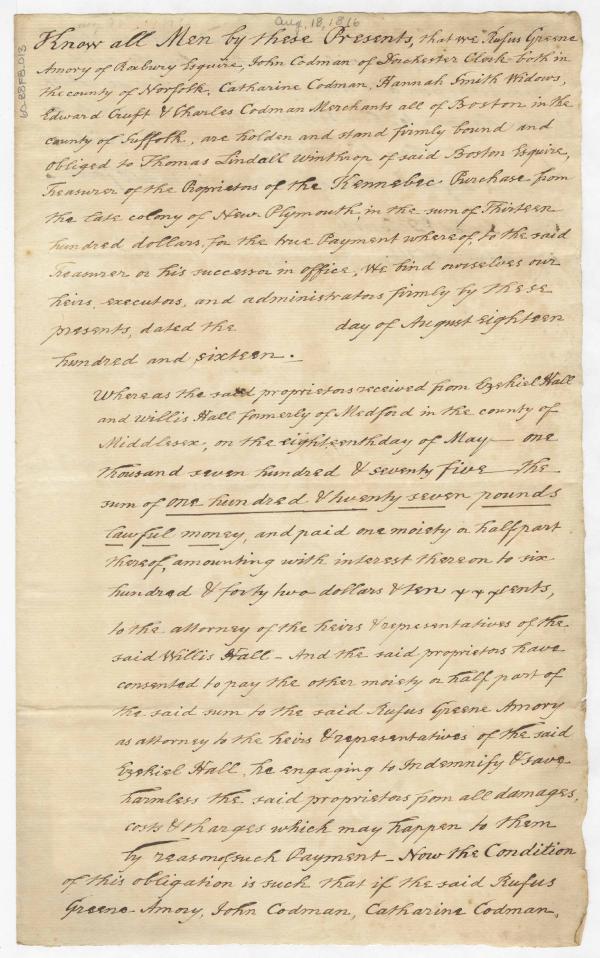 Aug. 18, 1816
Know all Men by these Presents, that we Rufus Greene
Amory of Roxbury Esquire, John Codman of Dorchester Clerk both in
the county of Norfolk, Catharine Codman, Hannah Smith Widows,
Edward Cruft & Charles Codman Merchants all of Boston in the
county of Suffolk, are holden and stand firmly bound and
obliged to Thomas Lindall Winthrop of said Boston Esquire,
Treasurer of the Proprietors of the Kennebec Purchase from
the late colony of New Plymouth, in the sum of Thirteen
hundred dollars, for the true Payment whereof, to the said
Treasurer or his successor in office, We bind ourselves our
heirs, executors, and administrators firmly by these
presents, dated the day of August eighteen
hundred and sixteen.
Whereas the said proprietors received from Ezekiel Hall
and Willis Hall formerly of Medford in the county of
Middlesex, on the eighteenth day of May one
thousand seven hundred & seventy five the
sum of one hundred & twenty seven pounds
lawful money, and paid one moiety or half part
thereof, amounting with interest thereon to six
hundred & forty two dollars & ten cents,
to the attorney of the heirs & representatives of the
said Willis Hall - And the said proprietors have
consented to pay the other moiety or half part of
the said sum to the said Rufus Greene Amory
as attorney to the heirs & representatives of the said
Ezekiel Hall, he engaging to Indemnify & save
harmless the said proprietors from all damages,
costs & charges which may happen to them
by reason of such Payment - Now the Condition
of this obligation is such that if the said Rufus
Greene Amory, John Codman, Catharine Codman,